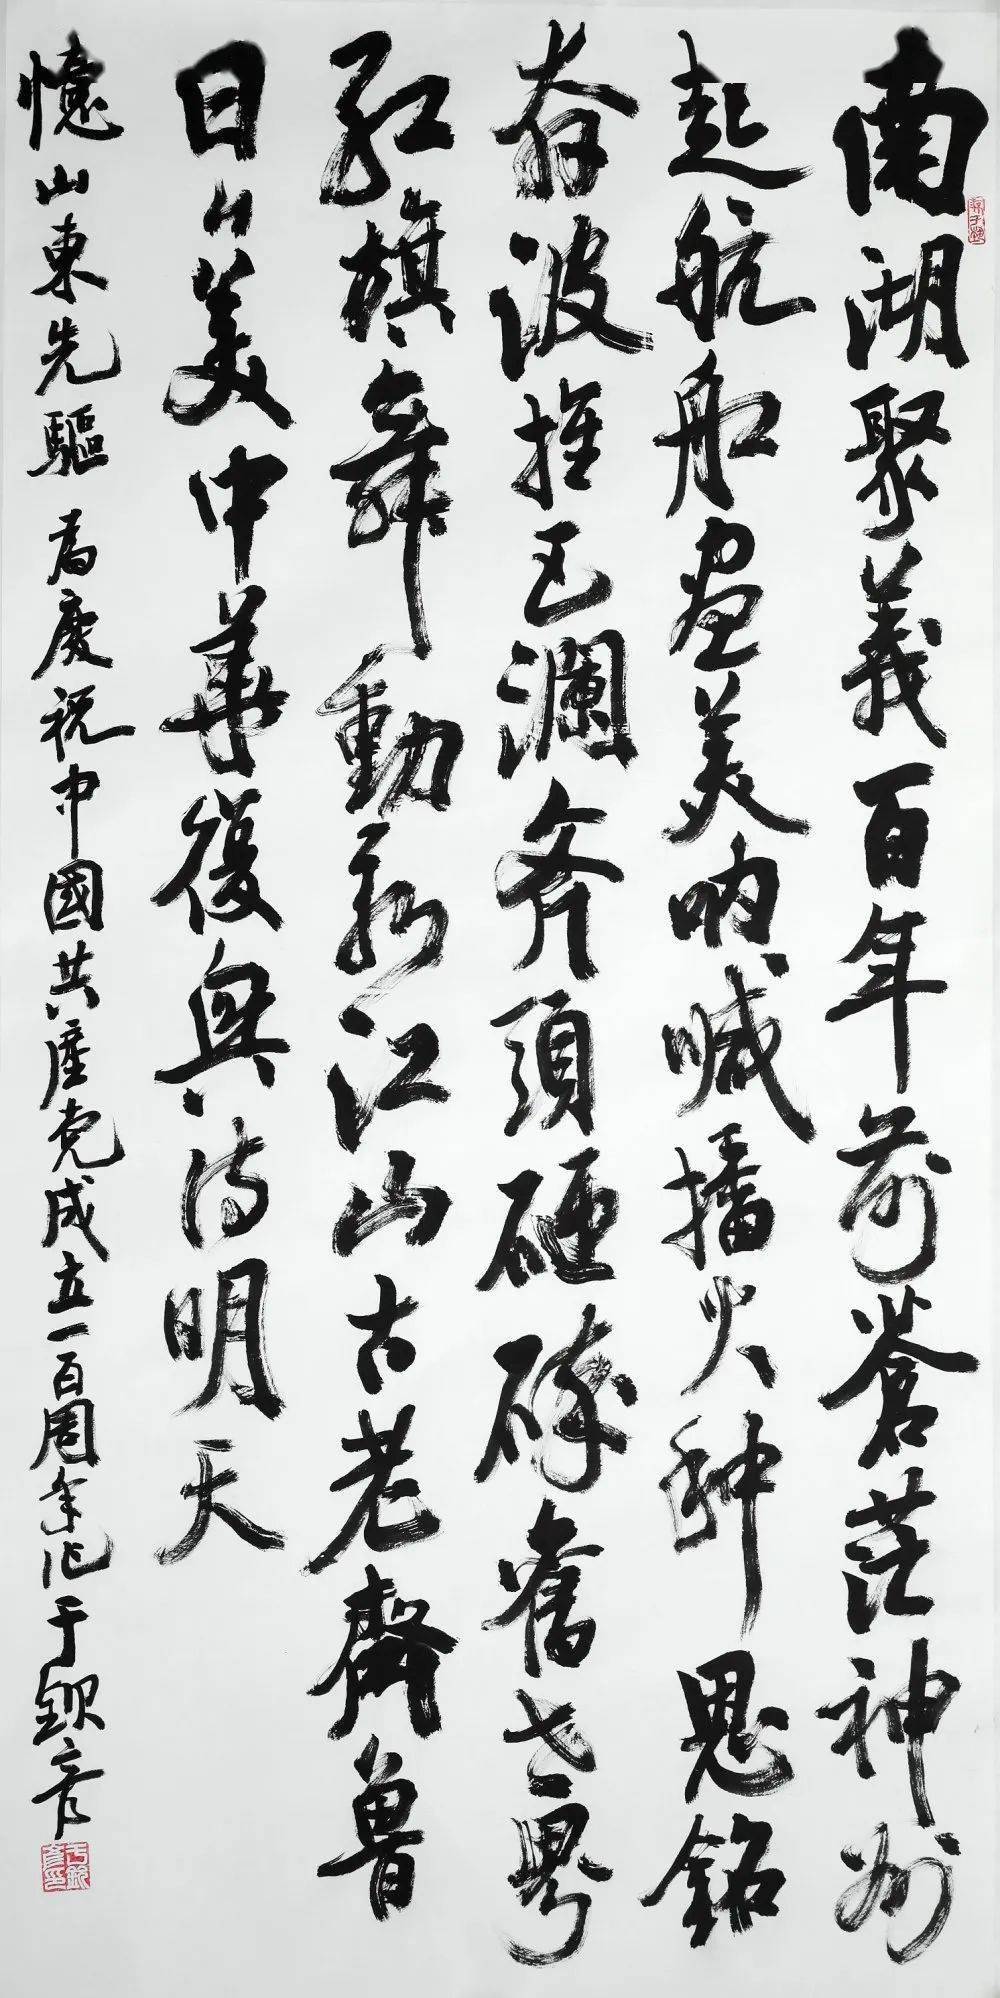 南湖聚義百年前蒼茫神州
起航船盡美吶喊播火种恩銘
奔波推巨瀾斧頭砸碎舊世界
紅旗舞動新江山古老齊魯
日日美中華復興待明天
憶山東先驅 為慶祝中國共產党成立一百周年作于欽彥